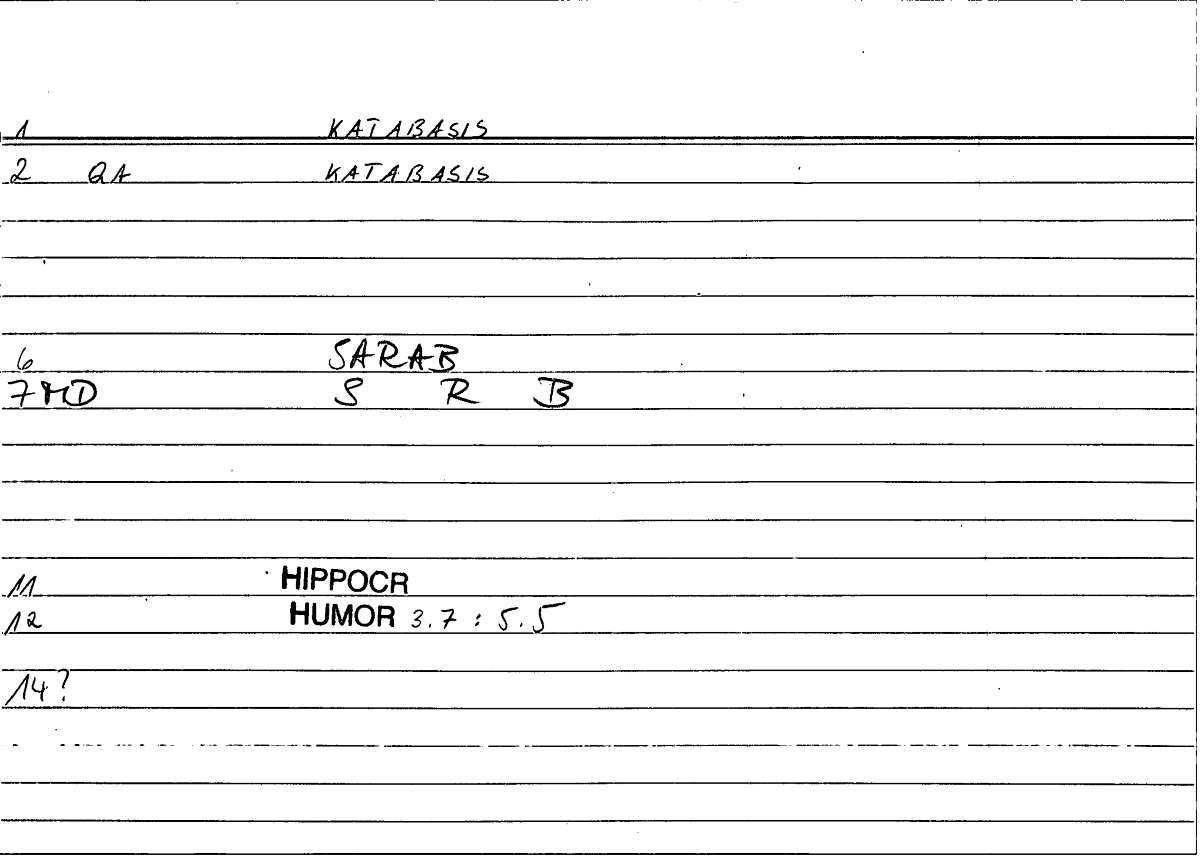 1 KATABASIS
2 QA KATABASIS
6 SARAB
7 MD S R B
11 HIPPOCR
12 HUMOR 3.7 : 5.5
14?